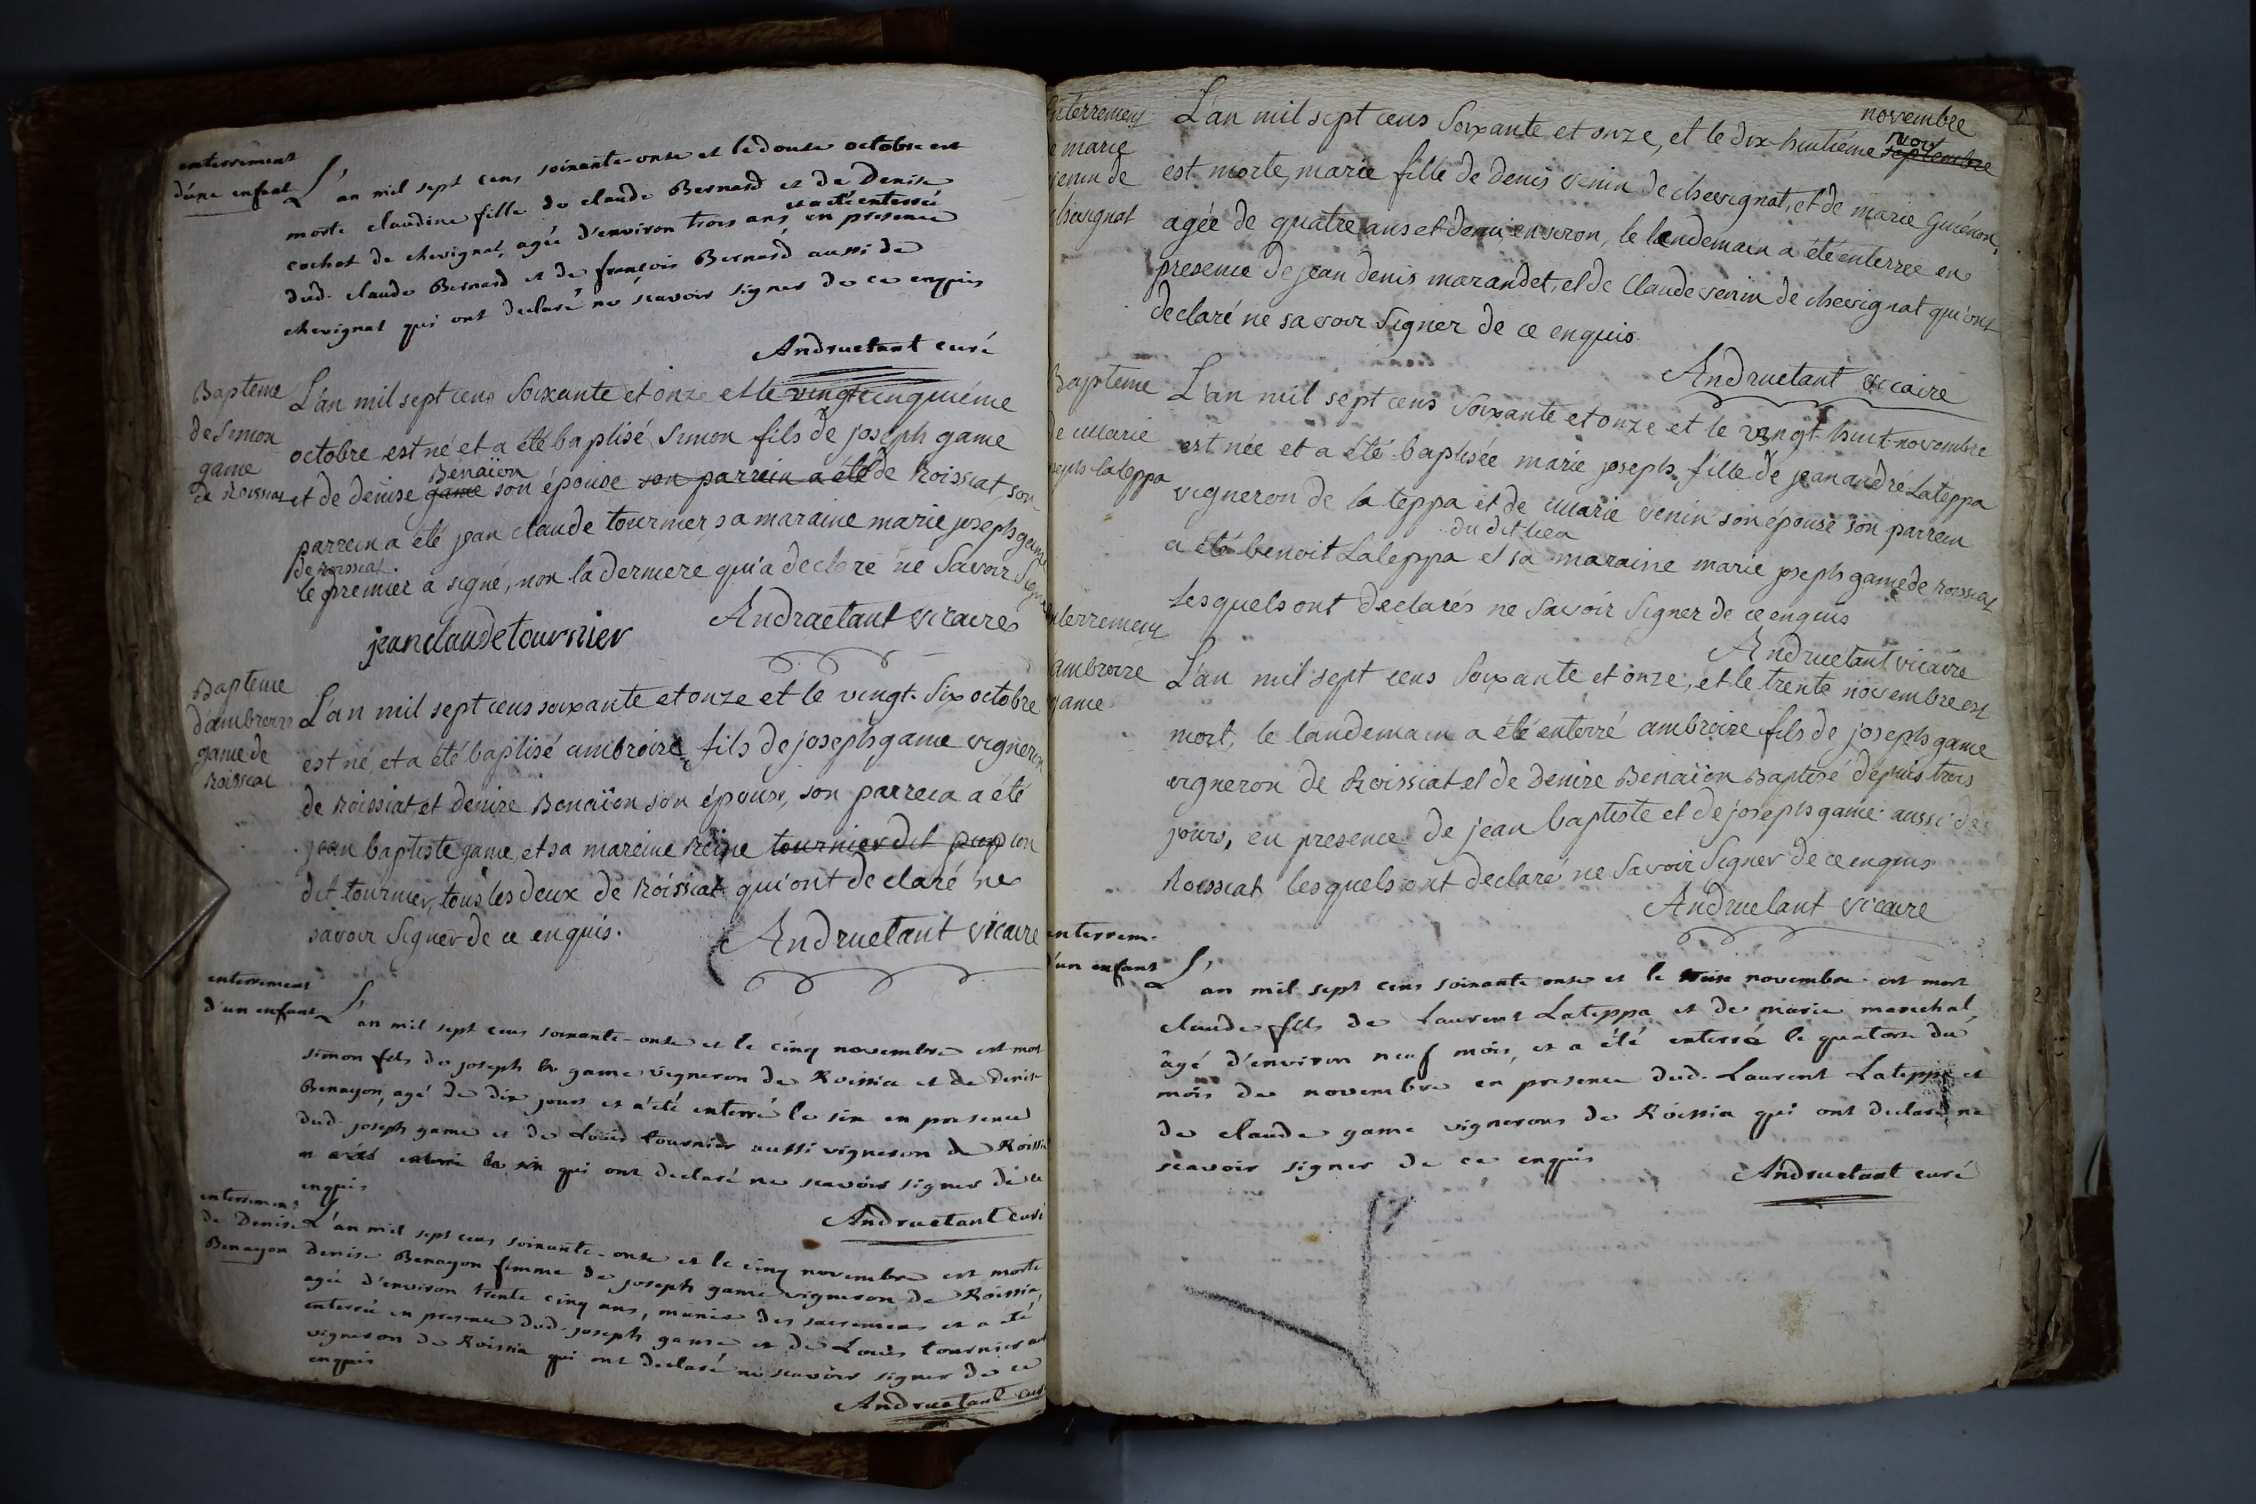 enterrement
d'une enfant
L'an mil sept cens soixante-onze et le douze octobre est
morte claudine fille de claude Bernard et de Denise
cochet de chevignat, agée d'environ trois ans, et a été enterrée en presence
dud. claude Bernard et de françois Bernard aussi de
chevignat qui ont declaré ne sçavoir signer de ce enquis
Andruetant curé
Bapteme
de Simon
game
de Roissiat
L'an mil sept cens Soixante et onze et le vingtcinquiéme
octobre est né et a été baptisé Simon fils de joseph game
et de denise game Benaïon son épouse son parrein a été de Roissiat son
parrein a été jean claude tournier, sa maraine marie joseph game
de roissiat.
le premier a signé, non la derniere qui a declaré ne Savoir Signer
Andruetant vicaire
jean claude tournier
Bapteme
d'ambroise
game de
Roissiat
L'an mil sept cens soixante et onze et le vingt-Six octobre
est né, et a été baptisé ambroise, fils de joseph game vigneron
de Roissiat et denise Benaïon son épouse, son parrein a été
jean baptiste game, et sa mareine Reine tournier dit
dit tournier, tous les deux de Roissiat qui ont declaré ne
savoir Signer de ce enquis.
Andruetant vicaire
enterrement
d'un enfant
L'an mil sept cens soixante-onze et le cinq novembre est mort
simon fils de joseph game vigneron de Roissia et de Denise
Benayon, agé de dix jours et a été enterré le six en presence
dud. joseph game et de Loüis tournier aussi vigneron de Roissia
a été enterré le six qui ont declaré ne sçavoir signer de ce
enquis
Andruetant curé
enterrement
de Denise
Benayon
L'an mil sept cens soixante-onze et le cinq novembre est morte
Denise Benayon femme de joseph game vigneron de Roissia,
agée d'environ trente cinq ans, munie des sacremens et a été
enterrée en presence dud. joseph game et de Loüis tournier
vigneron de Roissia qui ont declaré ne sçavoir signer de ce
enquis
Andruetant curé
enterrement
de marie
venin de
chevignat
L'an mil sept cens Soixante et onze, et le dix-huitiéme septembre novembre
est morte, marie fille de denis venin de chevignat, et de marie Guénon,
agée de quatre ans et demi environ, le landemain a été enterrée en
presence de jean denis marandet, et de Claude venin de chevignat qui ont
declaré ne savoir Signer de ce enquis
Andruetant vicaire
Bapteme
de Marie
joseph lateppa
L'an mil sept cens Soixante et onze et le vingt-huit novembre
est née et a été baptisée marie joseph, fille de jean andré Lateppa
vigneron de la teppa et de Marie venin son épouse son parrein
a été benoit Lateppa du dit lieu et sa maraine marie joseph game de roissiat
Lesquels ont declarés ne Savoir Signer de ce enquis
Andruetant vicaire
enterrement
ambroise
game
L'an mil sept cens Soixante et onze, et le trente novembre est
mort, le landemain a été enterré ambroise fils de joseph game
vigneron de Roissiat et de Denise Benaïon Baptisé depuis trois
jours, en presence de jean baptiste et de joseph game aussi de
Roissiat lesquels ont declaré ne Savoir Signer de ce enquis
Andruetant vicaire
enterrem.
d'un enfant
L'an mil sept cens soixante onze et le treize novembre est mort
claude fils de Laurent Lateppa et de marie marechal
âgé d'environ neuf mois, et a été enterré le quatorze du
mois de novembre en presence dud. Laurent Lateppa et
de claude game vignerons de Roissia qui ont declaré ne
sçavoir signer de ce enquis
Andruetant curé